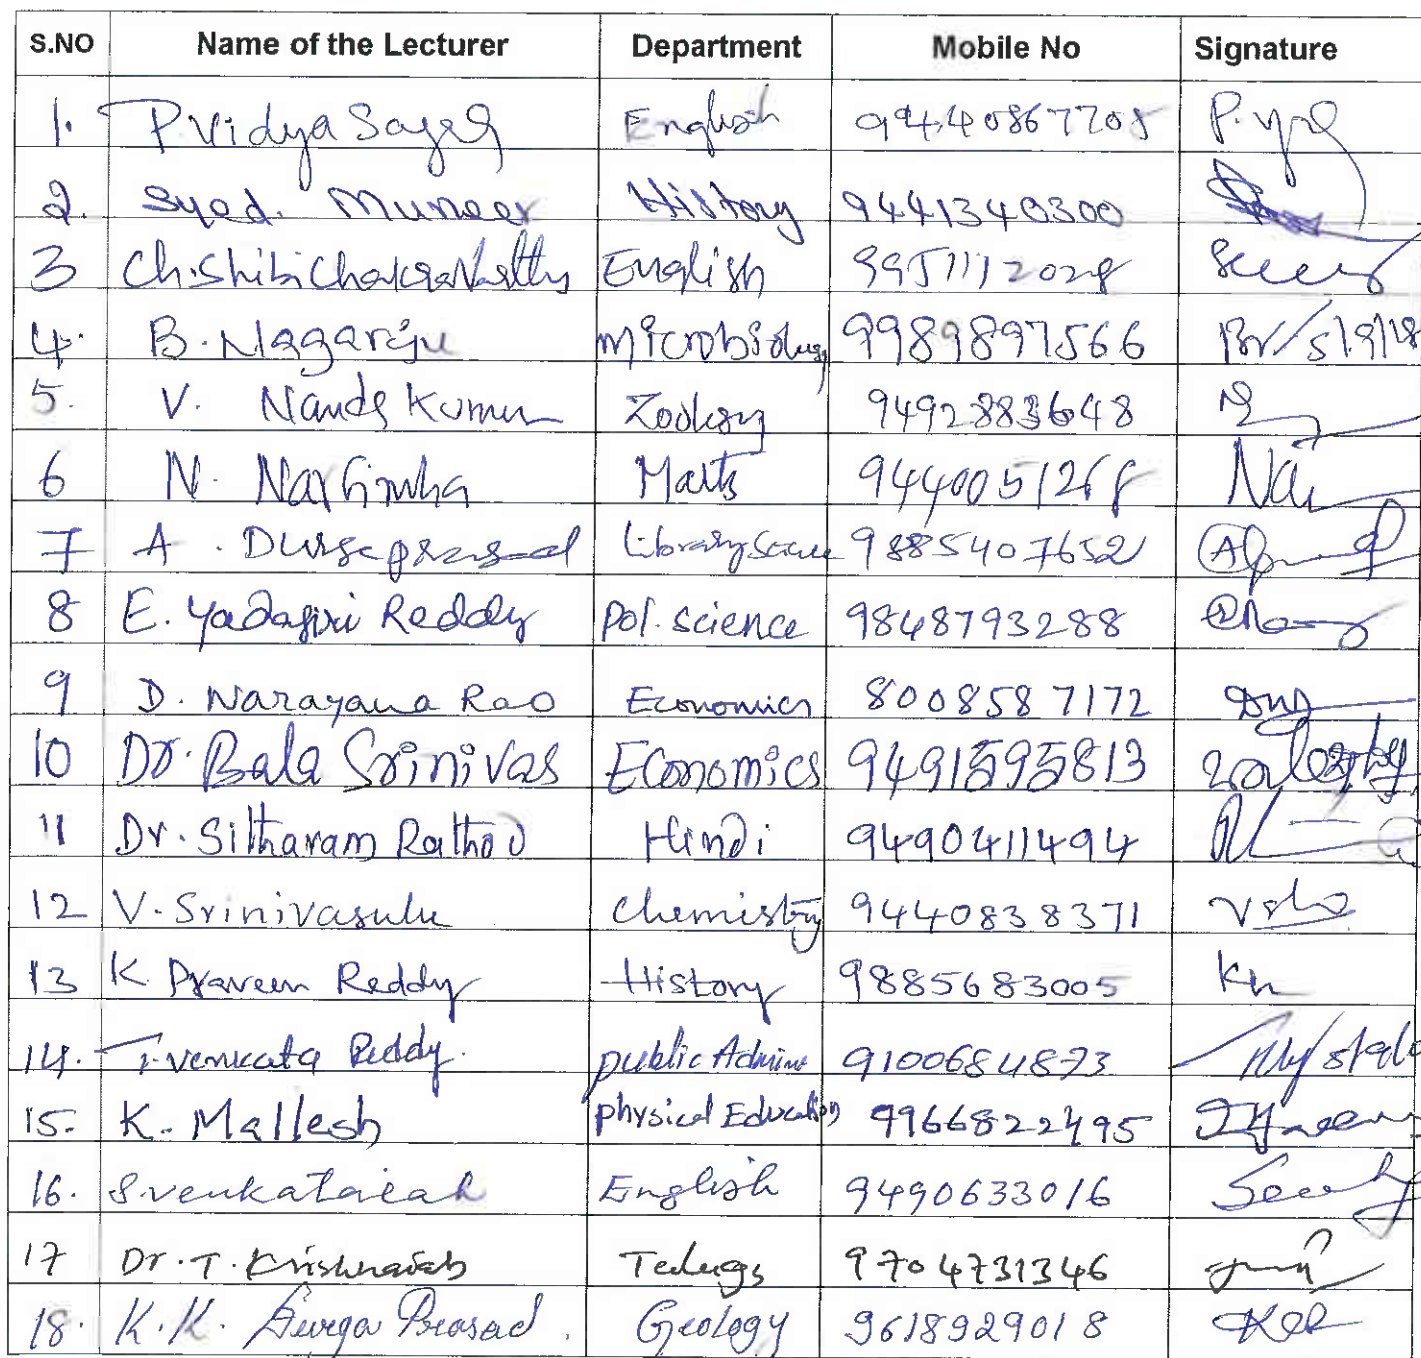 S.NO Name of the Lecturer Department Mobile No Signature
1. P Vidya Sagar English 9440867705
2. Syed. Muneer History 9441340300
3 Ch. Shibi Chakravarthy English 9951112028
4. B. Nagaraju Microbiology 9989897566
5. V. Nanda Kumar Zoology 9492883648
6 N. Narsimha Maths 9440051268
7 A. Durgaprasad Library Science 9885407652
8 E. Yadagiri Reddy Pol. Science 9848793288
9 D. Narayana Rao Economics 8008587172
10 Dr. Bala Srinivas Economics 9491595813
11 Dr. Sitharam Rathod Hindi 9490411494
12 V. Srinivasulu Chemistry 9440838371
13 K. Praveen Reddy History 9885683005
14. T. Venkata Reddy. Public Admins 9100684873
15. K. Mallesh Physical Education 9966822495
16. S. Venkataiah English 9490633016
17 Dr. T. Krishnaiah Telugu 9704731346
18. K. K. Durga Prasad. Geology 9618929018